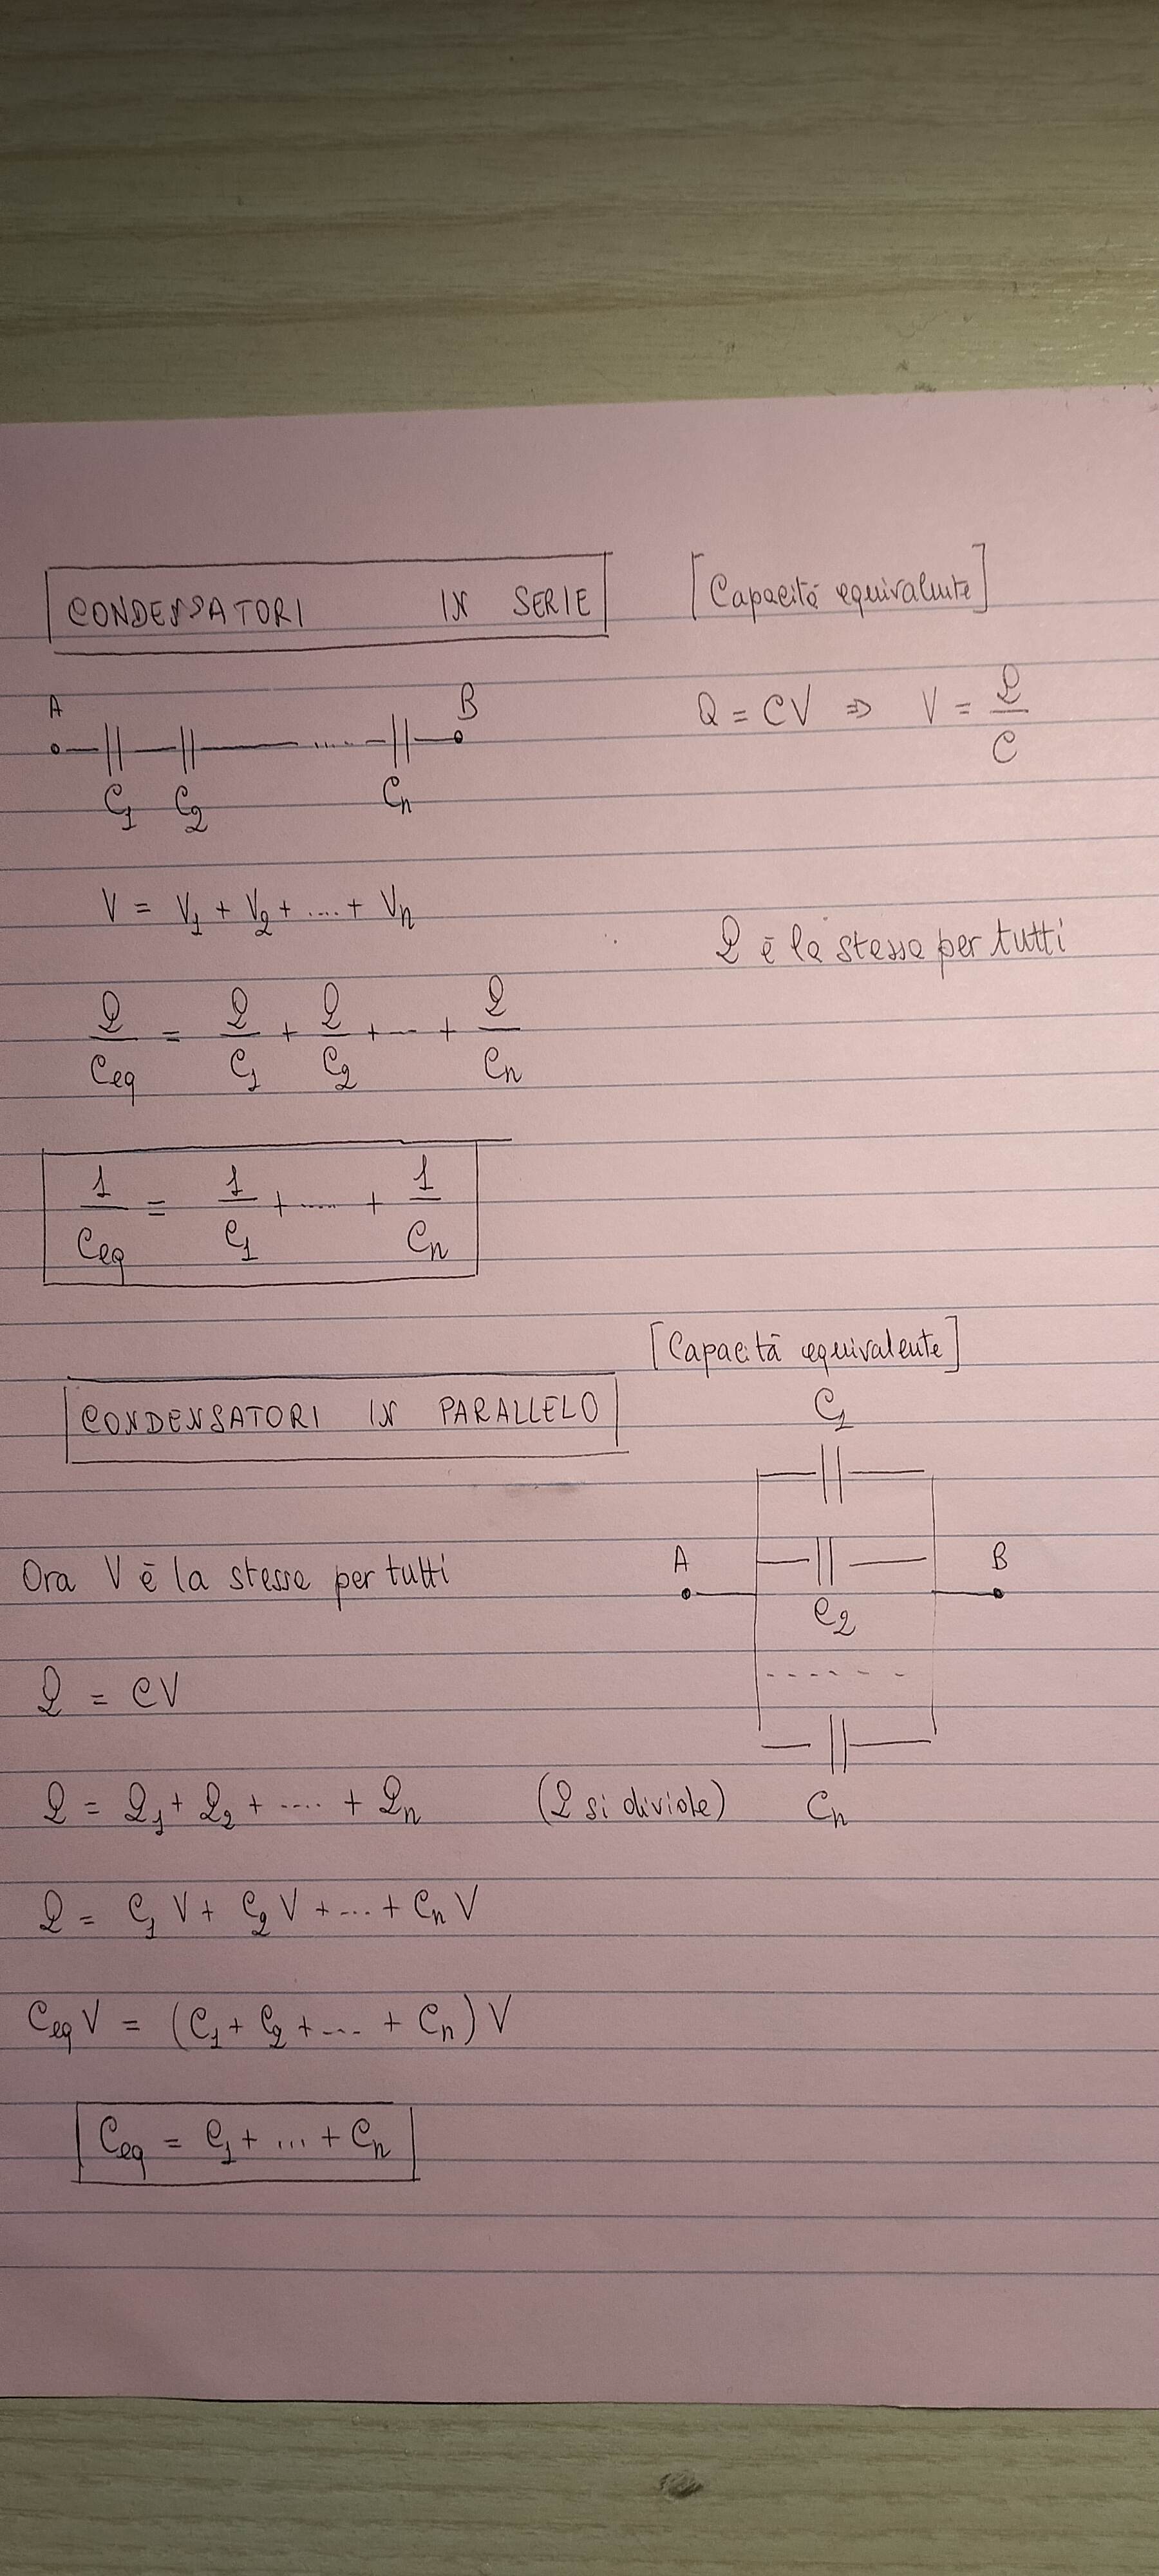 CONDENSATORI IN SERIE [Capacità equivalente]
A B
Q = CV ⇒ V = Q/C
C₁ C₂ Cₙ
V = V₁ + V₂ + .... + Vₙ
Q è la stessa per tutti
Q/Ceq = Q/C₁ + Q/C₂ + ... + Q/Cₙ
1/Ceq = 1/C₁ + ..... + 1/Cₙ
[Capacità equivalente]
CONDENSATORI IN PARALLELO
C₁
Ora V è la stessa per tutti
A B
C₂
Q = CV
Q = Q₁ + Q₂ + ..... + Qₙ (Q si divide)
Cₙ
Q = C₁ V + C₂ V + ... + Cₙ V
Ceq V = (C₁ + C₂ + .... + Cₙ) V
Ceq = C₁ + ... + Cₙ